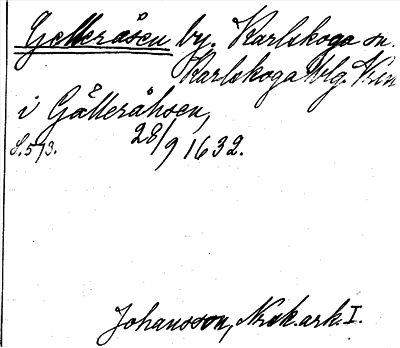 Gelleråsen by. Karlskoga sn.
Karlskoga blg. Krin
i Gålleråhsen,
S.573. 28/9 1632.
Johansson, Nrek.ark.I.